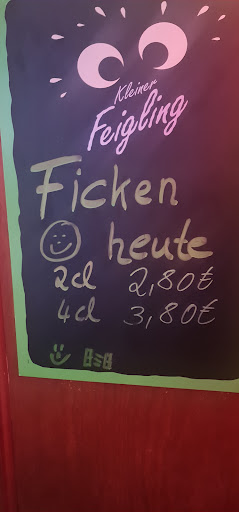 Kleiner
Feigling
Ficken
heute
2cl 2,80€
4cl 3,80€